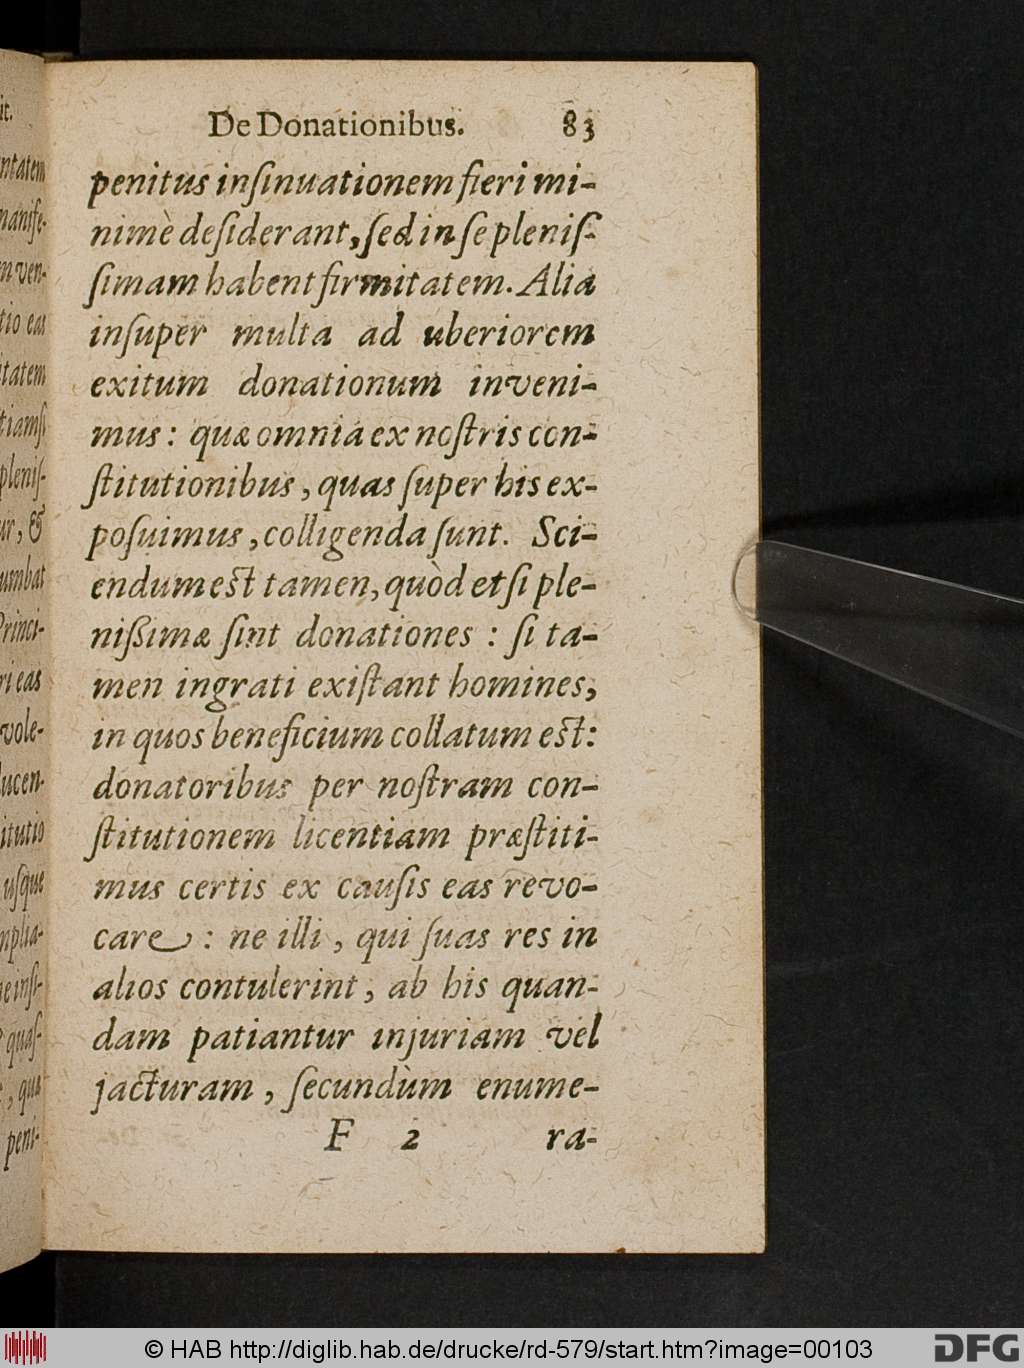 De Donationibus. 83
penitus inſinuationem fieri mi-
nimè deſiderant, ſed in ſe pleniſ-
ſimam habent firmitatem. Alia
inſuper multa ad uberiorem
exitum donationum inveni-
mus: quæ omnia ex noſtris con-
ſtitutionibus, quas ſuper his ex-
poſuimus, colligenda ſunt. Sci-
endum eſt tamen, quòd etſi ple-
nißimæ ſint donationes: ſi ta-
men ingrati exiſtant homines,
in quos beneficium collatum eſt:
donatoribus per noſtram con-
ſtitutionem licentiam præſtiti-
mus certis ex cauſis eas revo-
care: ne illi, qui ſuas res in
alios contulerint, ab his quan-
dam patiantur injuriam vel
jacturam, ſecundùm enume-
F 2 ra-
it.
ntatem
manife-
m ven-
tio eas
itatem
tiamſi
pleniſ-
ur, &
umbat
Princi-
ri eas
vole-
lucen-
itutio
uſque
mplia-
ne inſi-
quaſ-
, qua
peni-
© HAB http://diglib.hab.de/drucke/rd-579/start.htm?image=00103
DFG